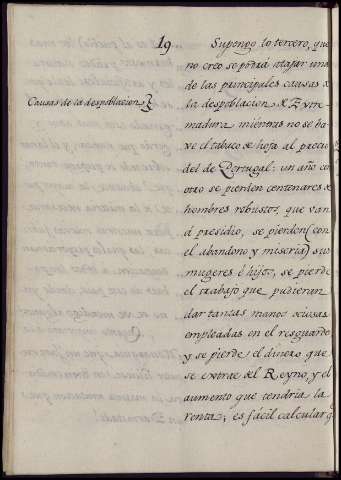 19
Supongo lo tercero, que
no creo se podrá atajar una
de las principales causas de
Causas de la despoblacion
la despoblacion de Extre-
madura mientras no se ba-
xe el tabaco de hoja al precio
del de Portugal: un año con
otro se pierden centenares de
hombres robustos, que van
á presidio, se pierden (con
el abandono y miseria) sus
mugeres é hijos, se pierde
el trabajo que pudieran
dar tantas manos ociosas
empleadas en el resguardo,
y se pierde el dinero que
se extrae del Reyno, y el
aumento que tendria la
renta; es fácil calcular q